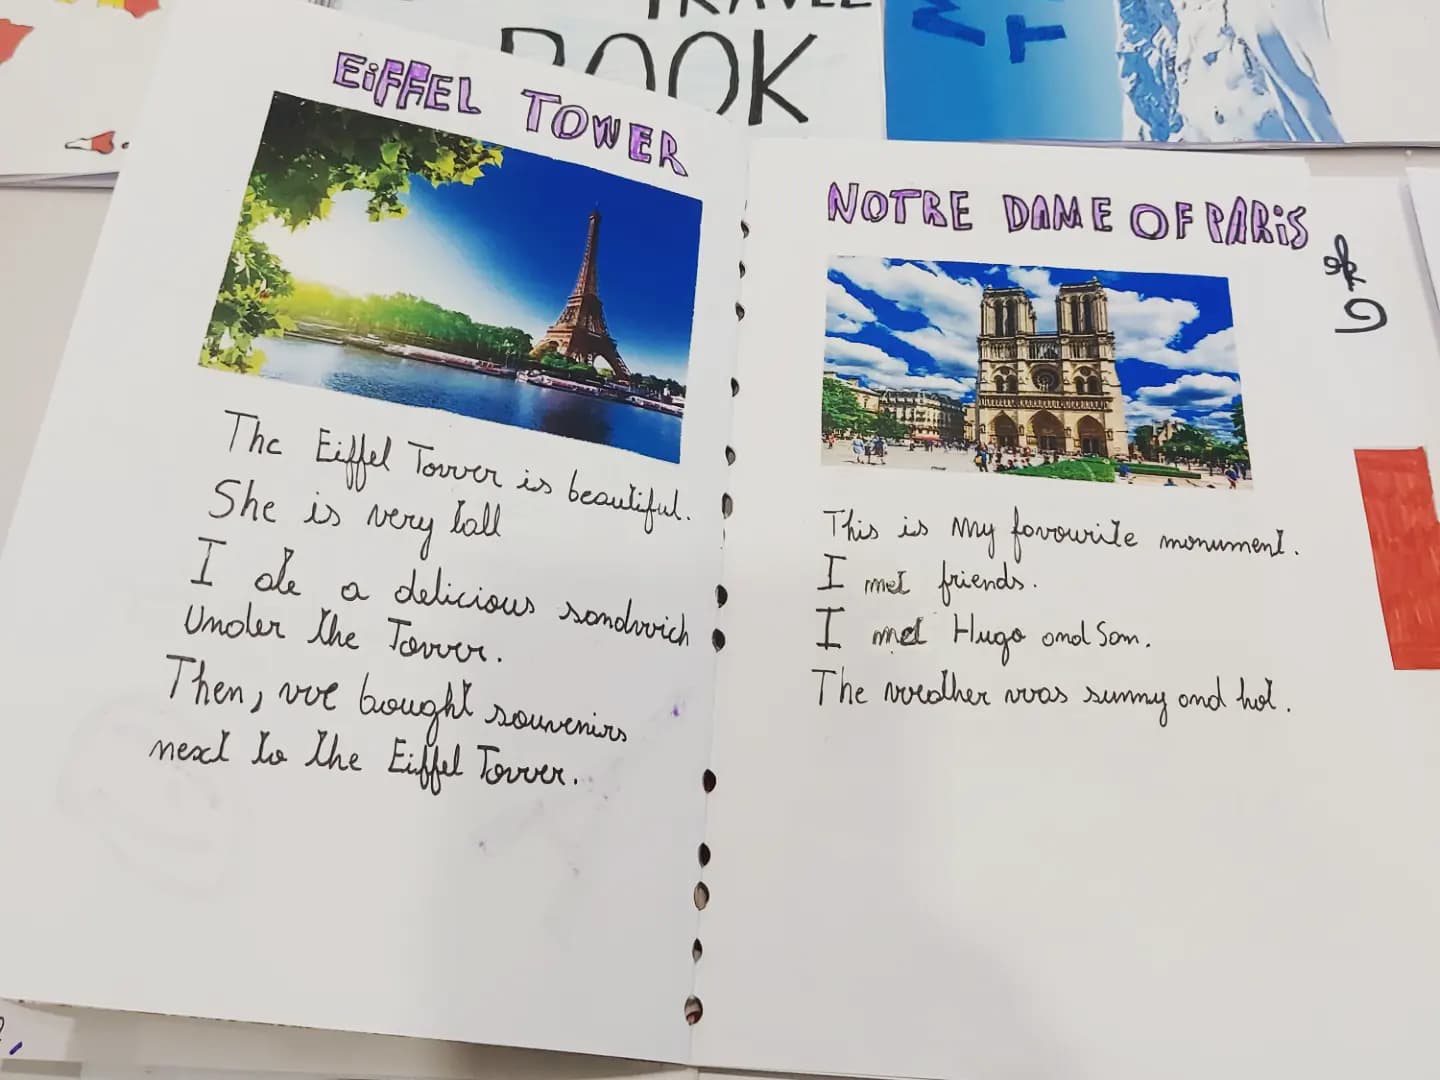 TRAVEL
BOOK
EiFFEL TOWER
The Eiffel Tower is beautiful.
She is very tall
I ate a delicious sandwich
Under the Tower.
Then, we bought souvenirs
next to the Eiffel Tower.
NOTRE DAME OF PARiS
This is my favourite monument.
I met friends.
I met Hugo and Sam.
The weather was sunny and hot.